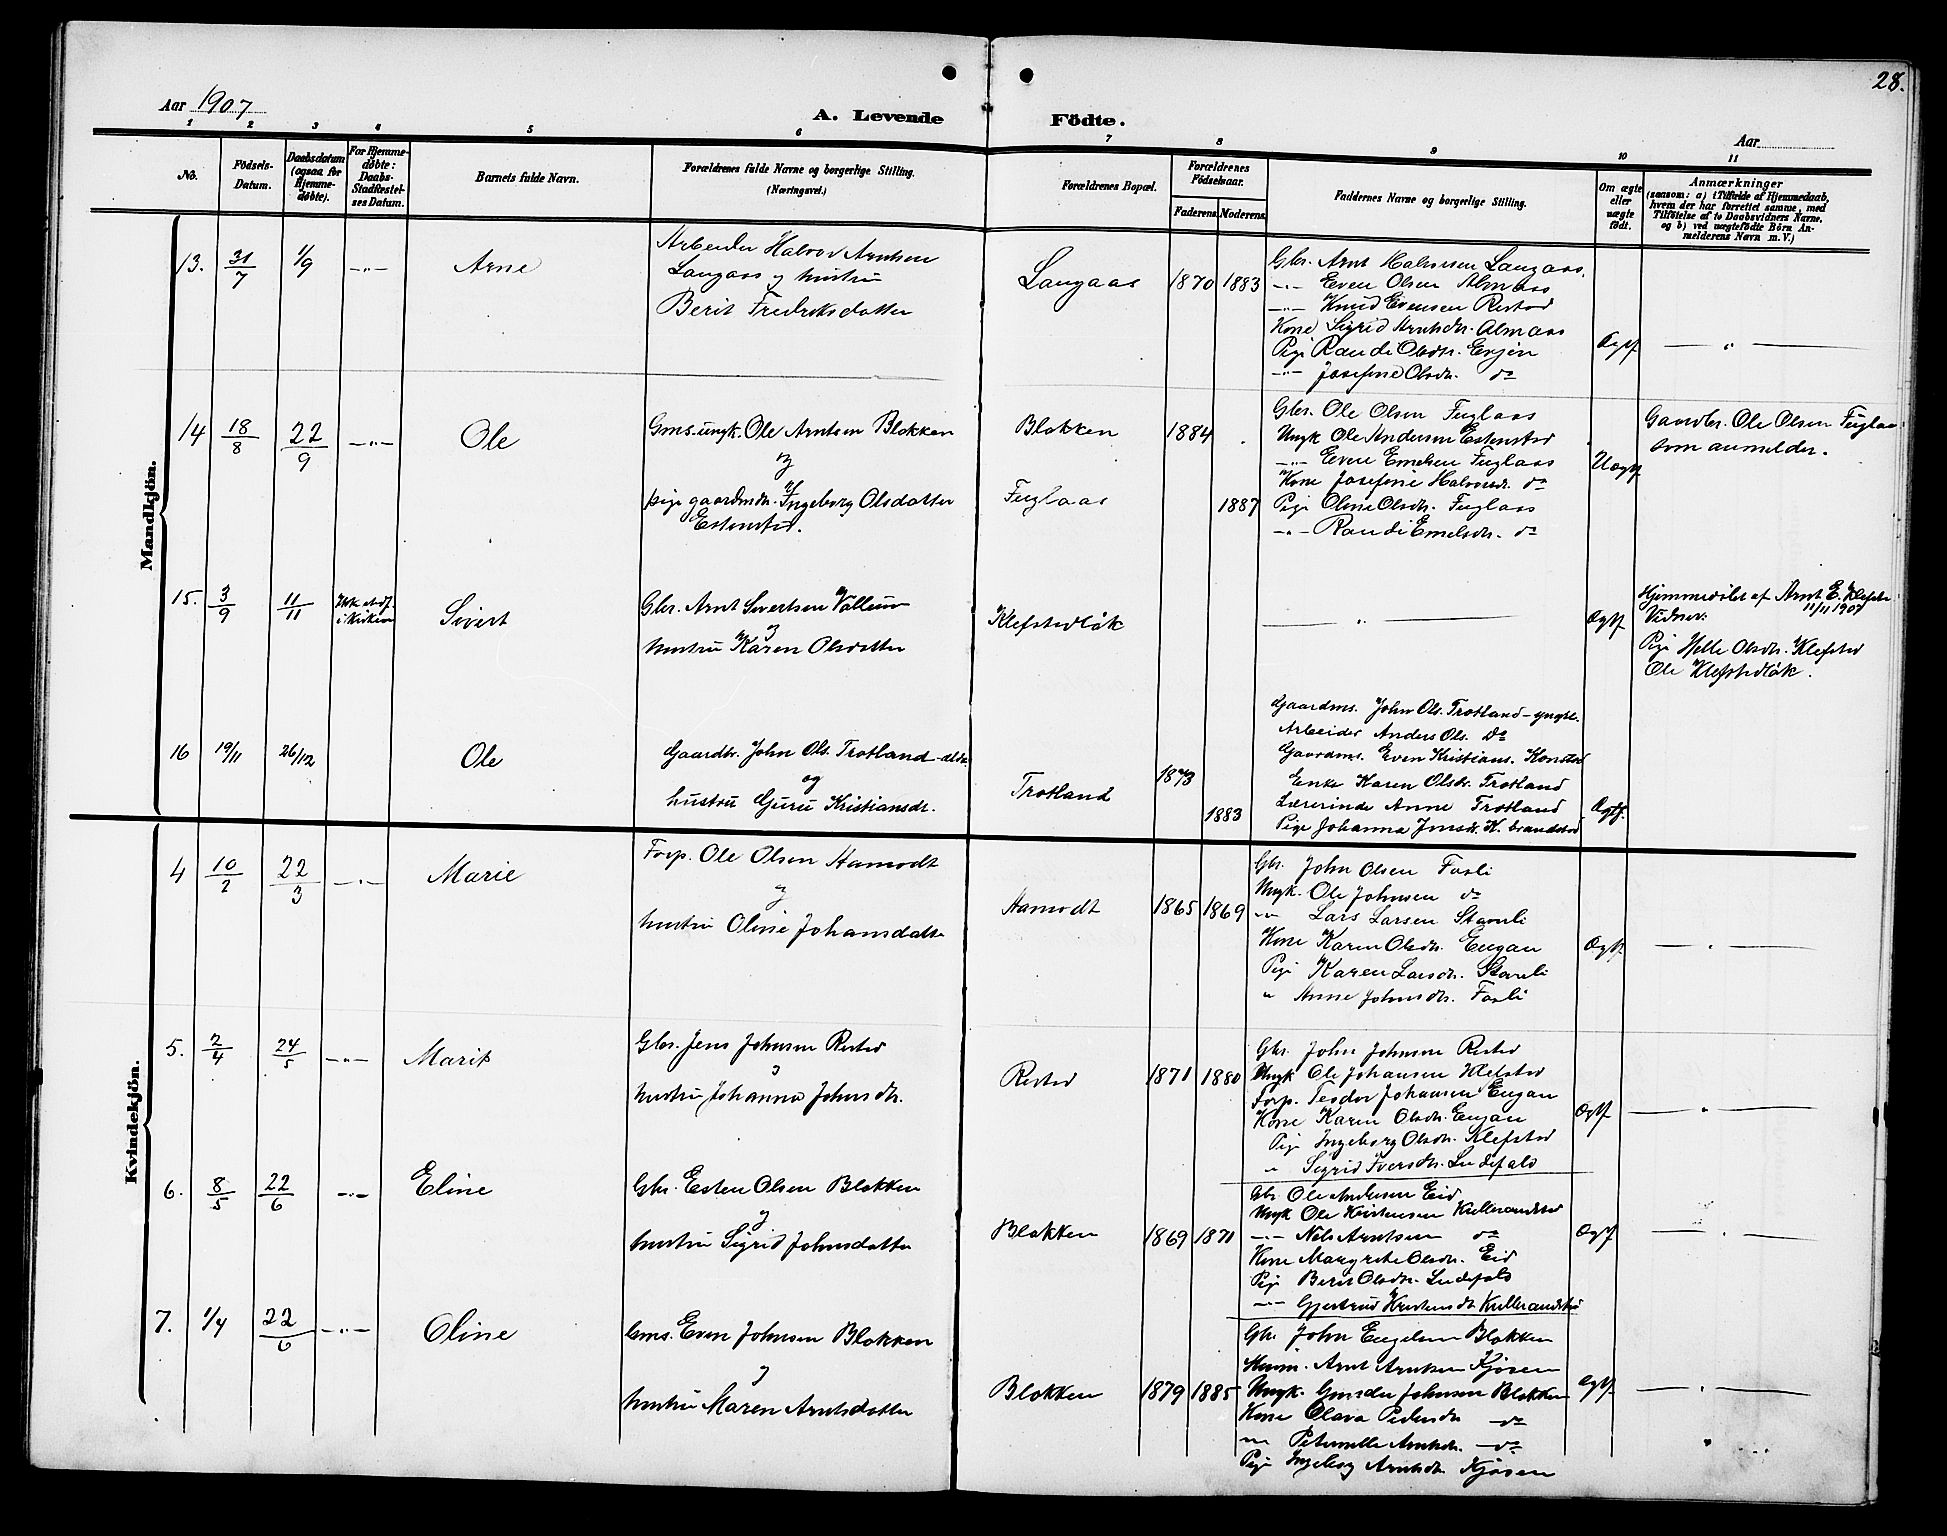 28.
Aar 1907
A. Levende Födte.
Aar
1 2 3 4 5 6 7 8 9 10 11
No.
Födsels-Datum.
Daabsdatum (ogsaa for Hjemme-döbte).
For Hjemme-döbte: Daabs-Stadfæstel-ses Datum.
Barnets fulde Navn.
Forældrenes fulde Navne og borgerlige Stilling.
(Næringsvei.)
Forældrenes Bopæl.
Forældrenes Födselsaar.
Faderens. Moderens.
Faddernes Navne og borgerlige Stilling.
Om ægte eller uægte födt.
Anmærkninger
(saasom: a) i Tilfælde af Hjemmedaab,
hvem der har forrettet samme, med
Tilföielse af to Daabsvidners Navne,
og b) ved uægtefödte Börn An-
melderens Navn m. V.)
Mandkjön.
13. 31/7 1/9 -"- Arne
Arbeider Halvor Arntsen
Langaas og hustru
Berit Fredriksdatter
Langaas 1870 1883
Gbr. Arnt Halvorsen Langaas.
-"- Even Olsen Almaas
-"- Knud Evensen Restad
Kone Sigrid Arntsdr. Almaas
Pige Randi Olsdr. Evjen
-"- Josefine Olsdr. do
Ægtf. — " —
14 18/8 22/9 -"- Ole
Gms. ungk. Ole Arntsen Blokken
og
pige gaardmdr. Ingeborg Olsdatter
Estenstad.
Blokken 1884
Fuglaas 1887
Gbr. Ole Olsen Fuglaas
Ungk Ole Andersen Estenstad
-"- Even Emelsen Fuglaas
Kone Josefine Halvorsdr. do
Pige Oline Olsdr. Fuglaas
-"- Randi Emelsdr. do
Uægtf
Gaardbr. Ole Olsen Fuglaas
som anmelder.
15. 3/9 11/11 Sivert
i Kirken
Gbr. Arnt Sivertsen Vollum
og
hustru Karen Olsdatter
Klefstadløk
— " —
Ægtf
Hjemmedøbt af Arnt E. Klefsta
11/11 1907
Vidner:
Pige Helle Olsdr. Klefstad
Ole Klefstadløk.
16 19/11 26/12 Ole
Gaardbr. John Ols. Trotland - ældr.
og
hustru Guru Kristiansdr.
Trotland 1873
1883
Gaardms. John Ols. Trotland - yngre.
Arbeider Anders Ols. Do
Gaardms. Even Kristians. Konstad
Enke Karen Olsdr. Trotland
Lærerinde Anne Trotland
Pige Johanna Jensdr. K. brandstad
Ægtf.
Kvindekjön.
4 10/2 22/3 -"- Marie
Forp. Ole Olsen Hamodt
og
hustru Oline Johansdatter
Hamodt 1865 1869
Gbr. John Olsen Fosli
Ungk. Ole Johnsen do
-"- Lars Larsen Stamli
Kone Karen Olsdr. Engan
Pige Karen Larsdr. Stamli
" Anne Johnsdr. Fosli
Ægtf. — " —
5. 2/4 24/5 -"- Marit
Gbr. Jens Johnsen Restad
og
hustru Johanna Johnsdr.
Restad 1871 1880
Gbr. John Johnsen Restad
Ungk Ole Johansen Klefstad
Forp. Teodor Johansen Engan
Kone Karen Olsdr. Engan
Pige Ingeborg Olsdr. Klefstad
" Sigrid Iversdr. Indefald
Ægtf — " —
6. 8/5 22/6 -"- Eline
Gbr. Esten Olsen Blokken
og
hustru Sigrid Johnsdatter
Blokken 1869 1871
Gbr Ole Andersen Eid
Ungk Ole Kristensen Kullbrandstad
-"- Nils Arntsen do
Kone Margrete Olsdr. Eid
Pige Berit Olsdr. Indefald
-"- Gjertrud Kristensdr Kullbrandstad
Ægtf — " —
7. 1/4 22/6 -"- Oline
Gms. Even Johnsen Blokken
og
hustru Maren Arntsdatter
Blokken 1879 1885
Gbr John Engelsen Blokken
Husm. Arnt Arntsen Kjøsen
Ungk. Johnsen Blokken
Kone Olava Pedersdr -do
-"- Peternelle Arntsdr. -do
Pige Ingeborg Arntsdr Kjøsen
Ægtf — " —